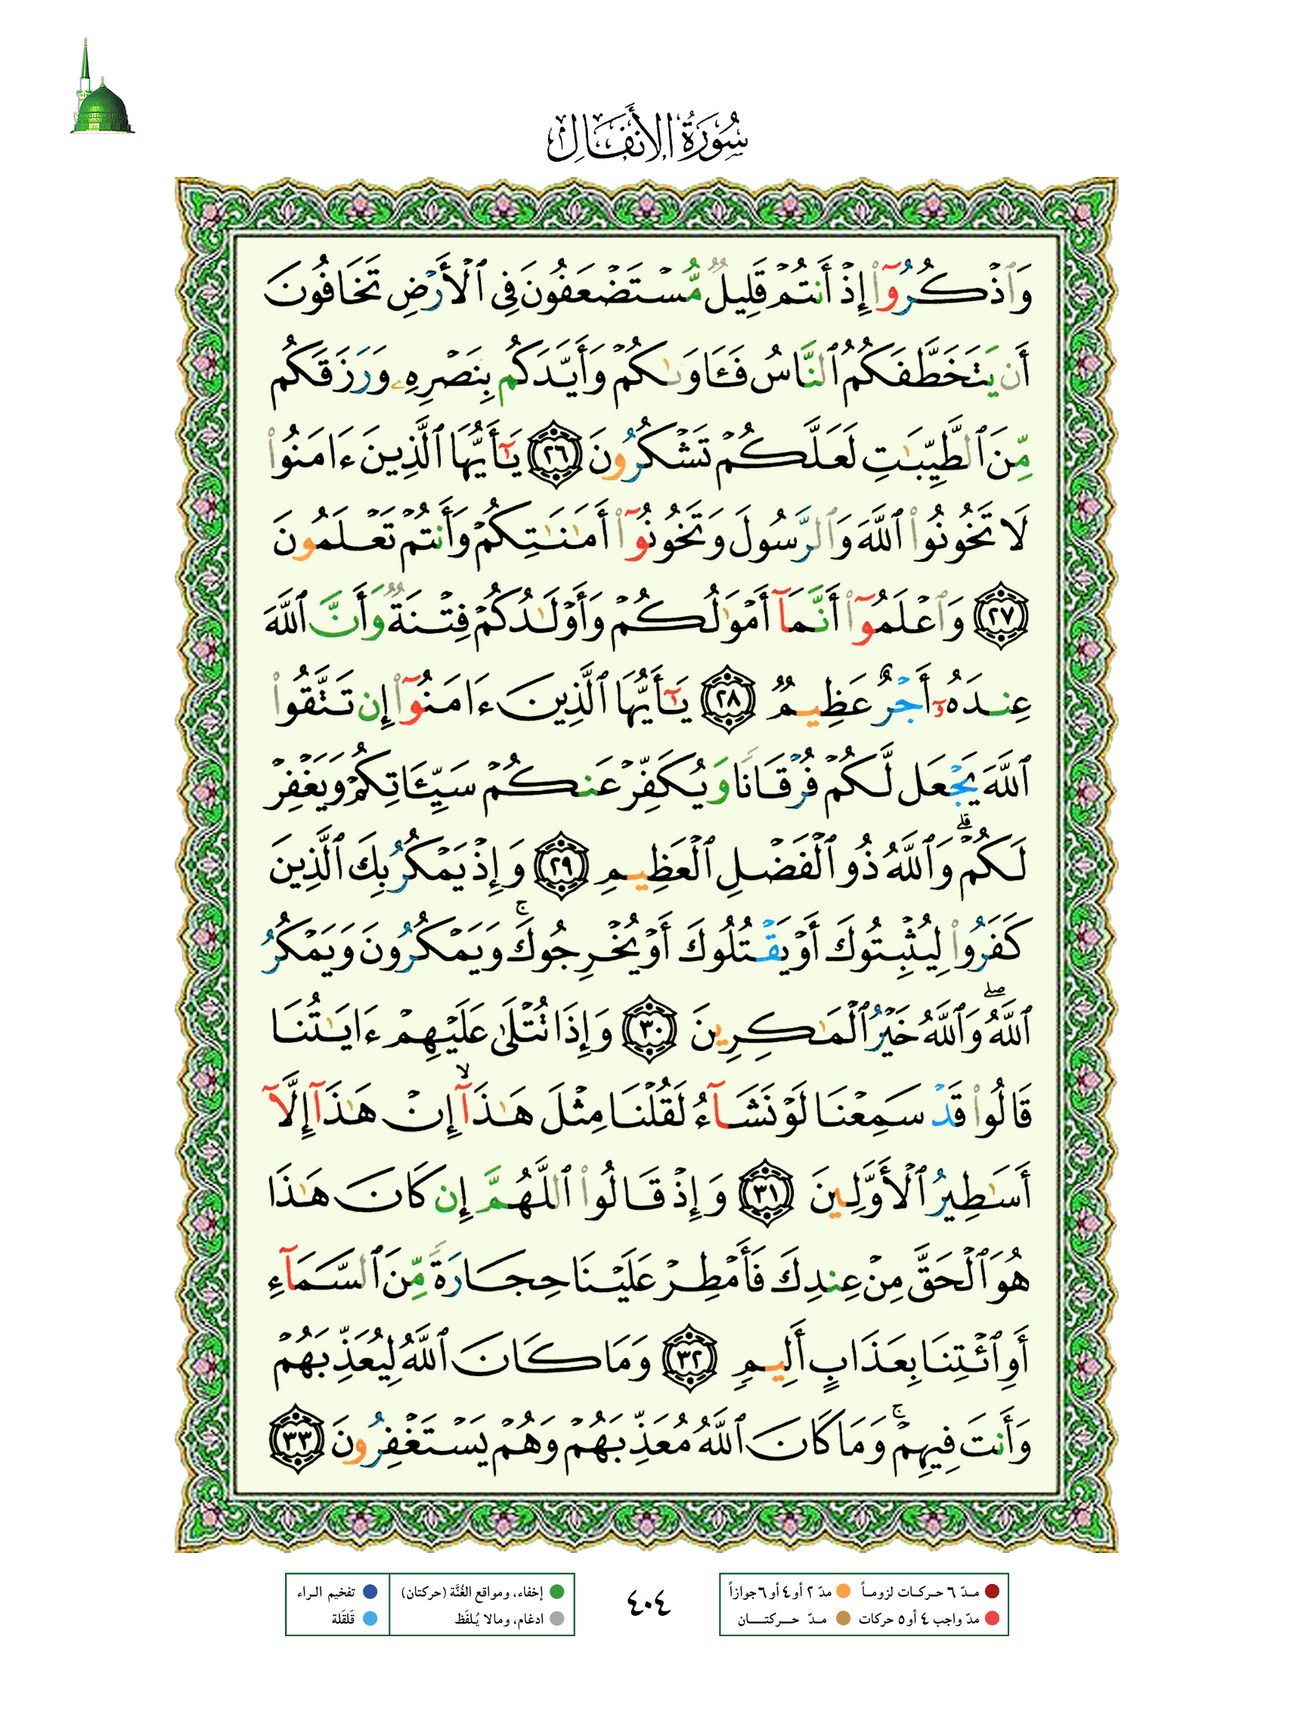 سُورَةُ الأَنفَالِ
وَٱذۡكُرُوٓاْ إِذۡ أَنتُمۡ قَلِيلٞ مُّسۡتَضۡعَفُونَ فِي ٱلۡأَرۡضِ تَخَافُونَ
أَن يَتَخَطَّفَكُمُ ٱلنَّاسُ فَـَٔاوَىٰكُمۡ وَأَيَّدَكُم بِنَصۡرِهِۦ وَرَزَقَكُم
مِّنَ ٱلطَّيِّبَٰتِ لَعَلَّكُمۡ تَشۡكُرُونَ ٢٦ يَٰٓأَيُّهَا ٱلَّذِينَ ءَامَنُواْ
لَا تَخُونُواْ ٱللَّهَ وَٱلرَّسُولَ وَتَخُونُوٓاْ أَمَٰنَٰتِكُمۡ وَأَنتُمۡ تَعۡلَمُونَ
٢٧ وَٱعۡلَمُوٓاْ أَنَّمَآ أَمۡوَٰلُكُمۡ وَأَوۡلَٰدُكُمۡ فِتۡنَةٞ وَأَنَّ ٱللَّهَ
عِندَهُۥٓ أَجۡرٌ عَظِيمٞ ٢٨ يَٰٓأَيُّهَا ٱلَّذِينَ ءَامَنُوٓاْ إِن تَتَّقُواْ
ٱللَّهَ يَجۡعَل لَّكُمۡ فُرۡقَانٗا وَيُكَفِّرۡ عَنكُمۡ سَيِّـَٔاتِكُمۡ وَيَغۡفِرۡ
لَكُمۡۗ وَٱللَّهُ ذُو ٱلۡفَضۡلِ ٱلۡعَظِيمِ ٢٩ وَإِذۡ يَمۡكُرُ بِكَ ٱلَّذِينَ
كَفَرُواْ لِيُثۡبِتُوكَ أَوۡ يَقۡتُلُوكَ أَوۡ يُخۡرِجُوكَۚ وَيَمۡكُرُونَ وَيَمۡكُرُ
ٱللَّهُۖ وَٱللَّهُ خَيۡرُ ٱلۡمَٰكِرِينَ ٣٠ وَإِذَا تُتۡلَىٰ عَلَيۡهِمۡ ءَايَٰتُنَا
قَالُواْ قَدۡ سَمِعۡنَا لَوۡ نَشَآءُ لَقُلۡنَا مِثۡلَ هَٰذَآۙ إِنۡ هَٰذَآ إِلَّآ
أَسَٰطِيرُ ٱلۡأَوَّلِينَ ٣١ وَإِذۡ قَالُواْ ٱللَّهُمَّ إِن كَانَ هَٰذَا
هُوَ ٱلۡحَقَّ مِنۡ عِندِكَ فَأَمۡطِرۡ عَلَيۡنَا حِجَارَةٗ مِّنَ ٱلسَّمَآءِ
أَوِ ٱئۡتِنَا بِعَذَابٍ أَلِيمٖ ٣٢ وَمَا كَانَ ٱللَّهُ لِيُعَذِّبَهُمۡ
وَأَنتَ فِيهِمۡۚ وَمَا كَانَ ٱللَّهُ مُعَذِّبَهُمۡ وَهُمۡ يَسۡتَغۡفِرُونَ ٣٣
مـدّ ٦ حـركـات لزومـاً مدّ ٢ أو ٤ أو ٦ جوازاً
مدّ واجب ٤ أو ٥ حركات مـدّ حـــركتـــان
٤٠٤
إخفاء، ومواقع الغُنَّة (حركتان) تفخيم الراء
ادغام، ومالا يُلفَظ قَلقَلة